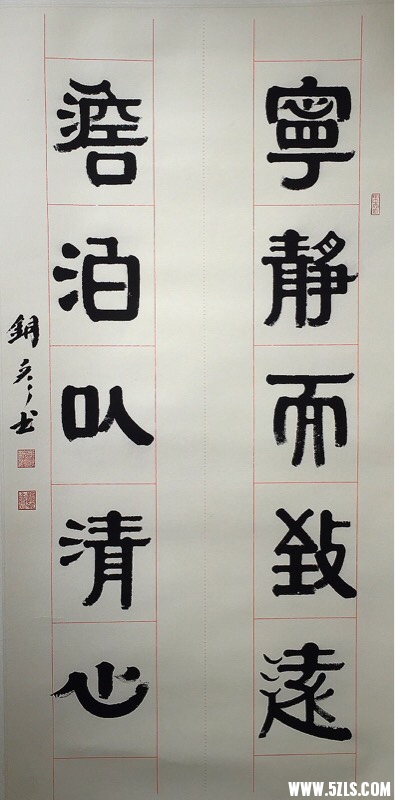 寧靜而致遠
澹泊以清心
WWW.5ZLS.COM